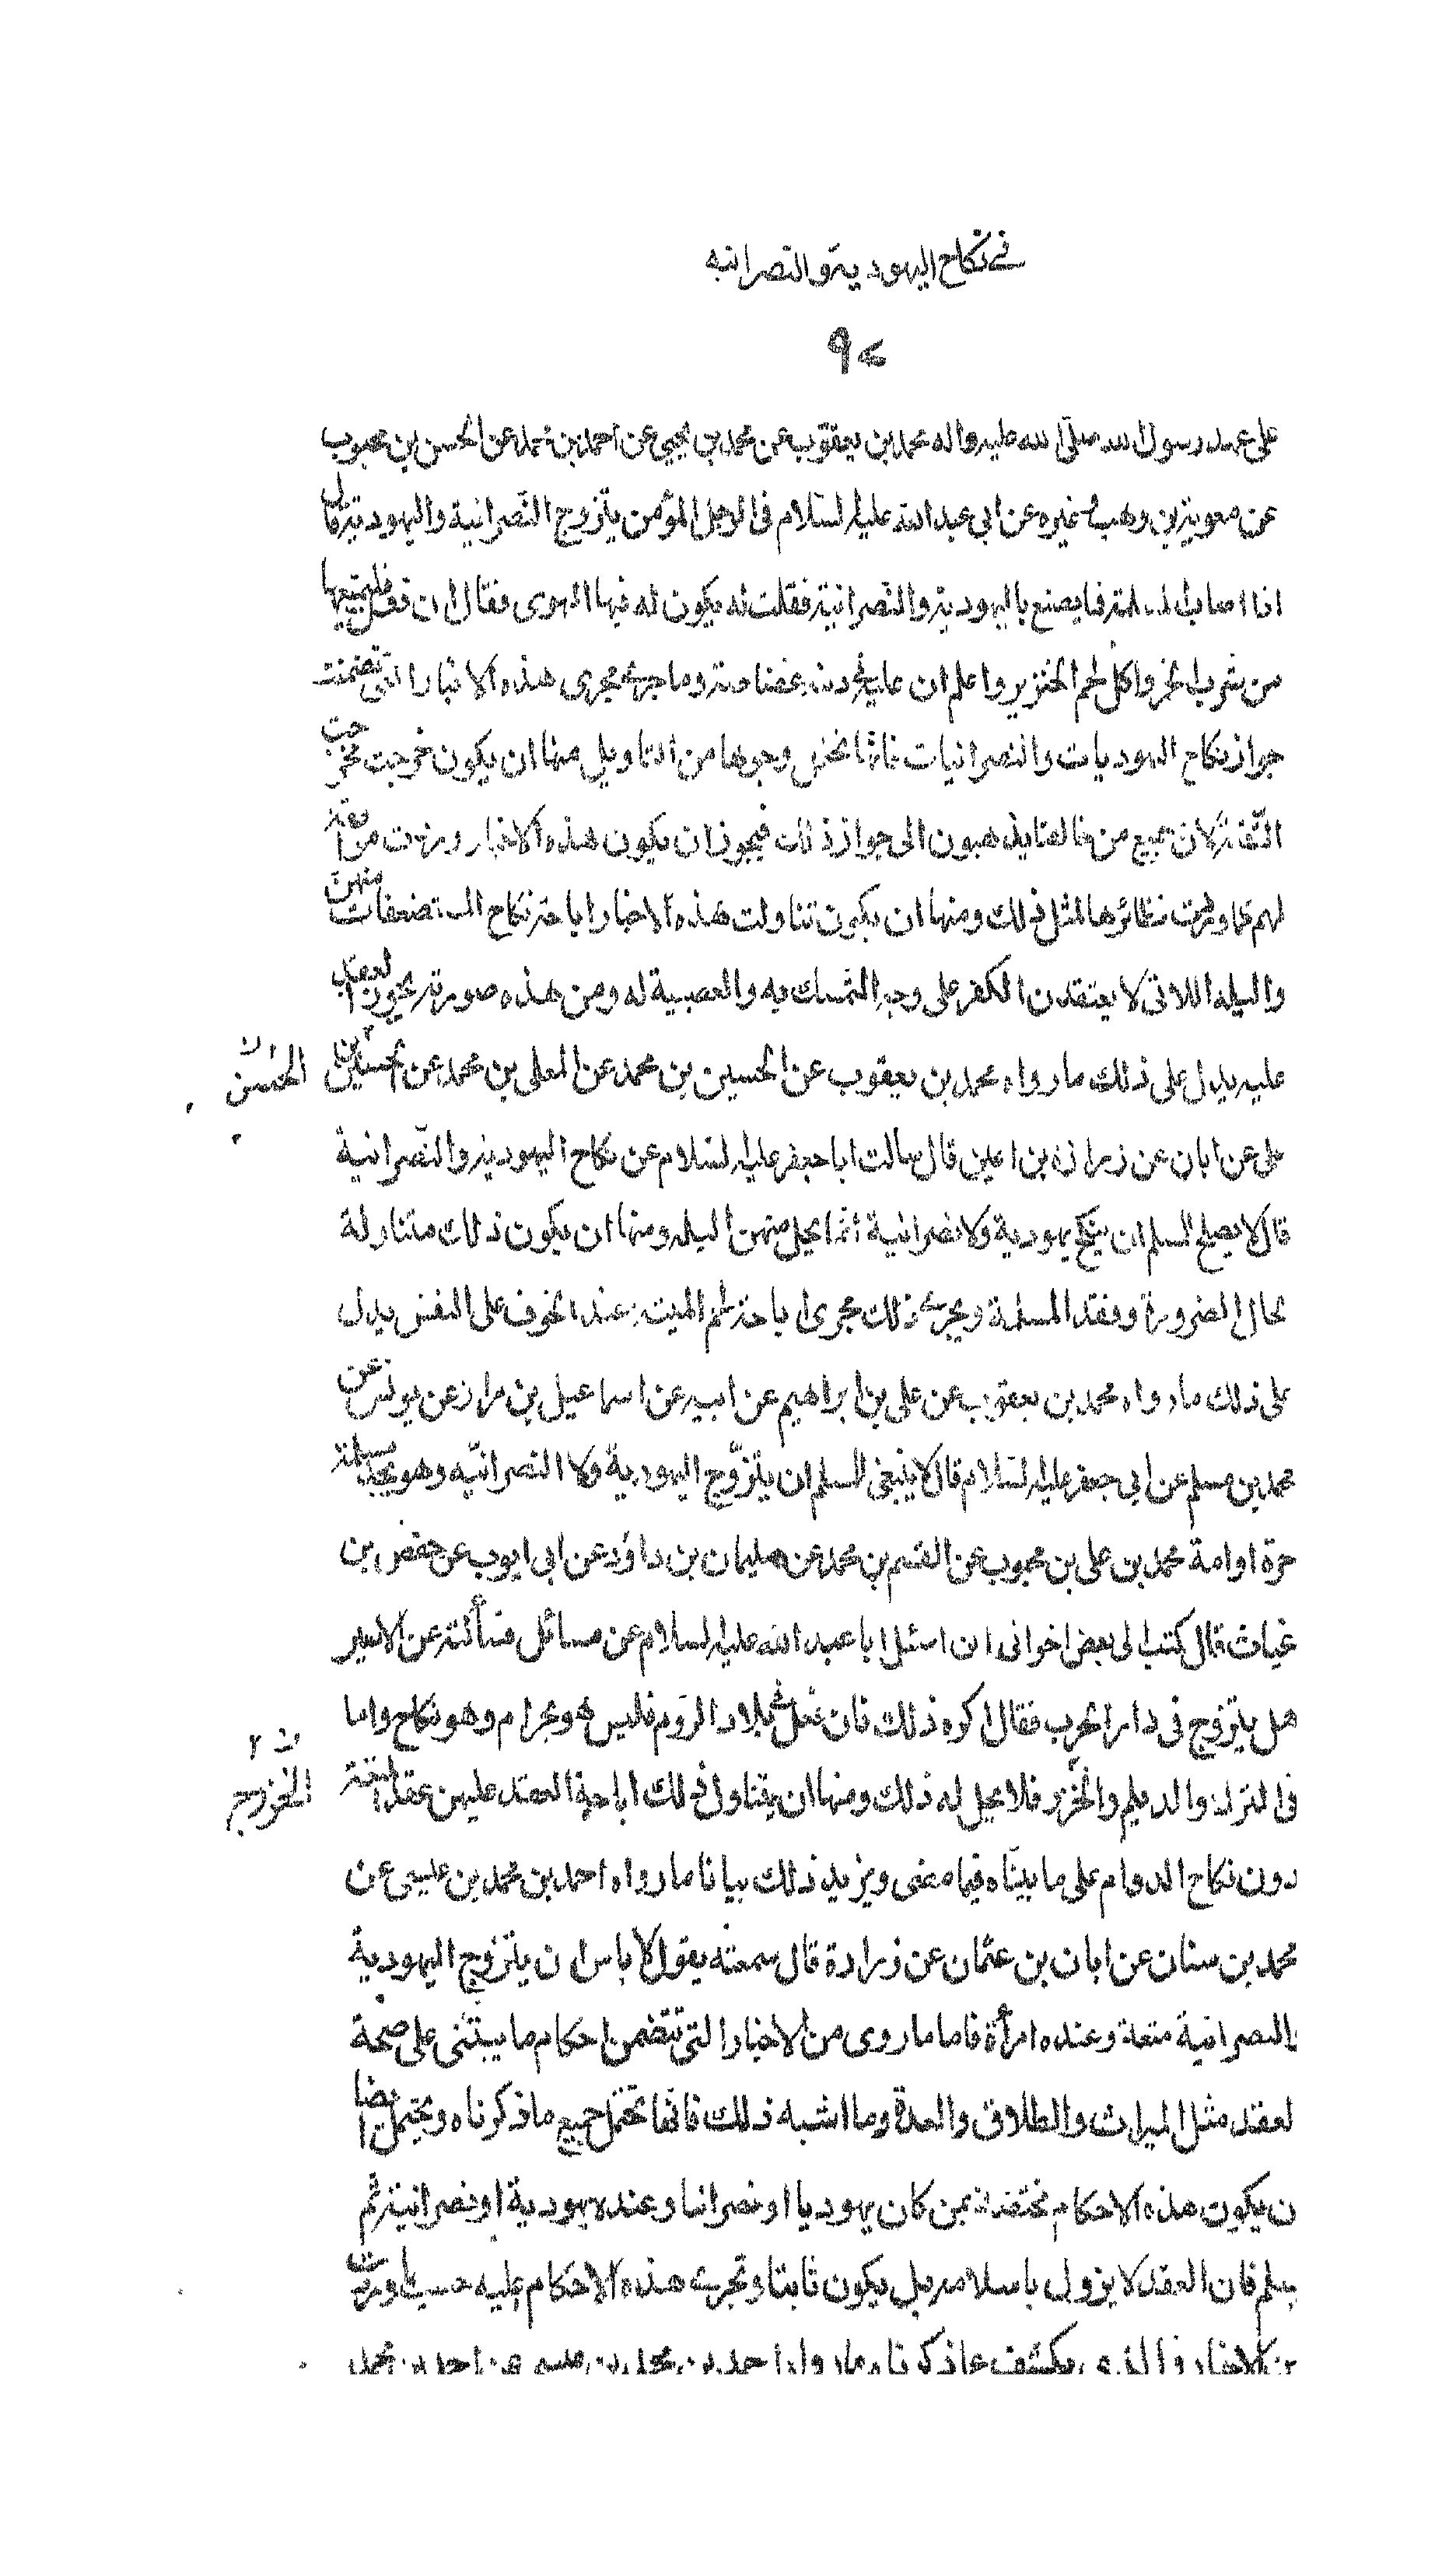 في نكاح اليهودية والنصرانيه
٩
على عهد رسول الله صلى الله عليه واله محمد بن يعقوب عن محمد بن يحيى عن احمد بن محمد عن الحسن بن محبوب
عن معوية بن وهب وغيره عن ابي عبد الله عليه السلام في الرجل المؤمن يتزوج النصرانية واليهودية قال
اذا اصاب المسلمة فما يصنع باليهودية والنصرانية فقلت له يكون له فيها الهوى فقال ان فعل فليمنعها
من شرب الخمر واكل لحم الخنزير واعلم ان عليه في دينه غضاضة وما جرى مجرى هذه الاخبار التي تضمنت
جواز نكاح اليهوديات والنصرانيات فانها تحتمل وجوها من التاويل منها ان يكون خرجت مخرج
التقية لان جميع من خالفنا يذهبون الى جواز ذلك فيجوز ان يكون هذه الاخبار وردت موافقة
لهم كما وردت نظائرها لمثل ذلك ومنها ان يكون تناولت هذه الاخبار اباحة نكاح المستضعفات منهن
والبله اللاتي لا يعتقدن الكفر على وجه التمسك به والعصبية له ومن هذه صورته يجوز العقد
عليه يدل على ذلك ما رواه محمد بن يعقوب عن الحسين بن محمد عن المعلى بن محمد عن الحسين بن
الحسن
على عن ابان عن زرارة بن اعين قال سالت ابا جعفر عليه السلام عن نكاح اليهودية والنصرانية
قال لا يصلح للمسلم ان ينكح يهودية ولا نصرانية انما يحل منهن البله ومنها ان يكون ذلك متناولة
لحال الضرورة وفقد المسلمة ويجرى ذلك مجرى اباحة لحم الميتة عند الخوف على النفس يدل
على ذلك ما رواه محمد بن يعقوب عن على بن ابراهيم عن ابيه عن اسماعيل بن مرار عن يونس عن
محمد بن مسلم عن ابي جعفر عليه السلام قال لا ينبغى للمسلم ان يتزوج اليهودية ولا النصرانيه وهو يجد مسلمة
حرة او امة محمد بن على بن محبوب عن القسم بن محمد عن سليمان بن داود عن ابي ايوب عن حفص بن
غياث قال كتب الى بعض اخوانى ان اسئل ابا عبد الله عليه السلام عن مسائل فسألته عن الاسير
هل يتزوج في دار الحرب فقال اكره ذلك فان فعل في بلاد الروم فليس هو بحرام وهو نكاح واما
في الترك والديلم والخزر فلا يحل له ذلك ومنها ان يتناول ذلك اباحة العقد عليهن عقد المتعة
الخزرج
دون نكاح الدوام على ما بيناه فيما مضى ويزيد ذلك بيانا ما رواه احمد بن محمد بن عيسى عن
محمد بن سنان عن ابان بن عثمان عن زرارة قال سمعته يقول لا باس ان يتزوج اليهودية
والنصرانية متعة وعنده امرأة فاما ما روى من الاخبار التى تتضمن احكام ما يبتنى على صحة
لعقد مثل الميراث والطلاق والعدة وما اشبه ذلك فانها تحتمل جميع ما ذكرناه ويحتمل ايضا
ن يكون هذه الاحكام مختصة بمن كان يهوديا او نصرانيا وعنده يهودية او نصرانية ثم
يسلم فان العقد لا يزول باسلامه بل يكون ثابتا وتجرى هذه الاحكام عليه حسب ما وردت
من الاخبار والذي يكشف عما ذكرناه ما رواه احمد بن محمد بن عيسى عن احمد بن محمد